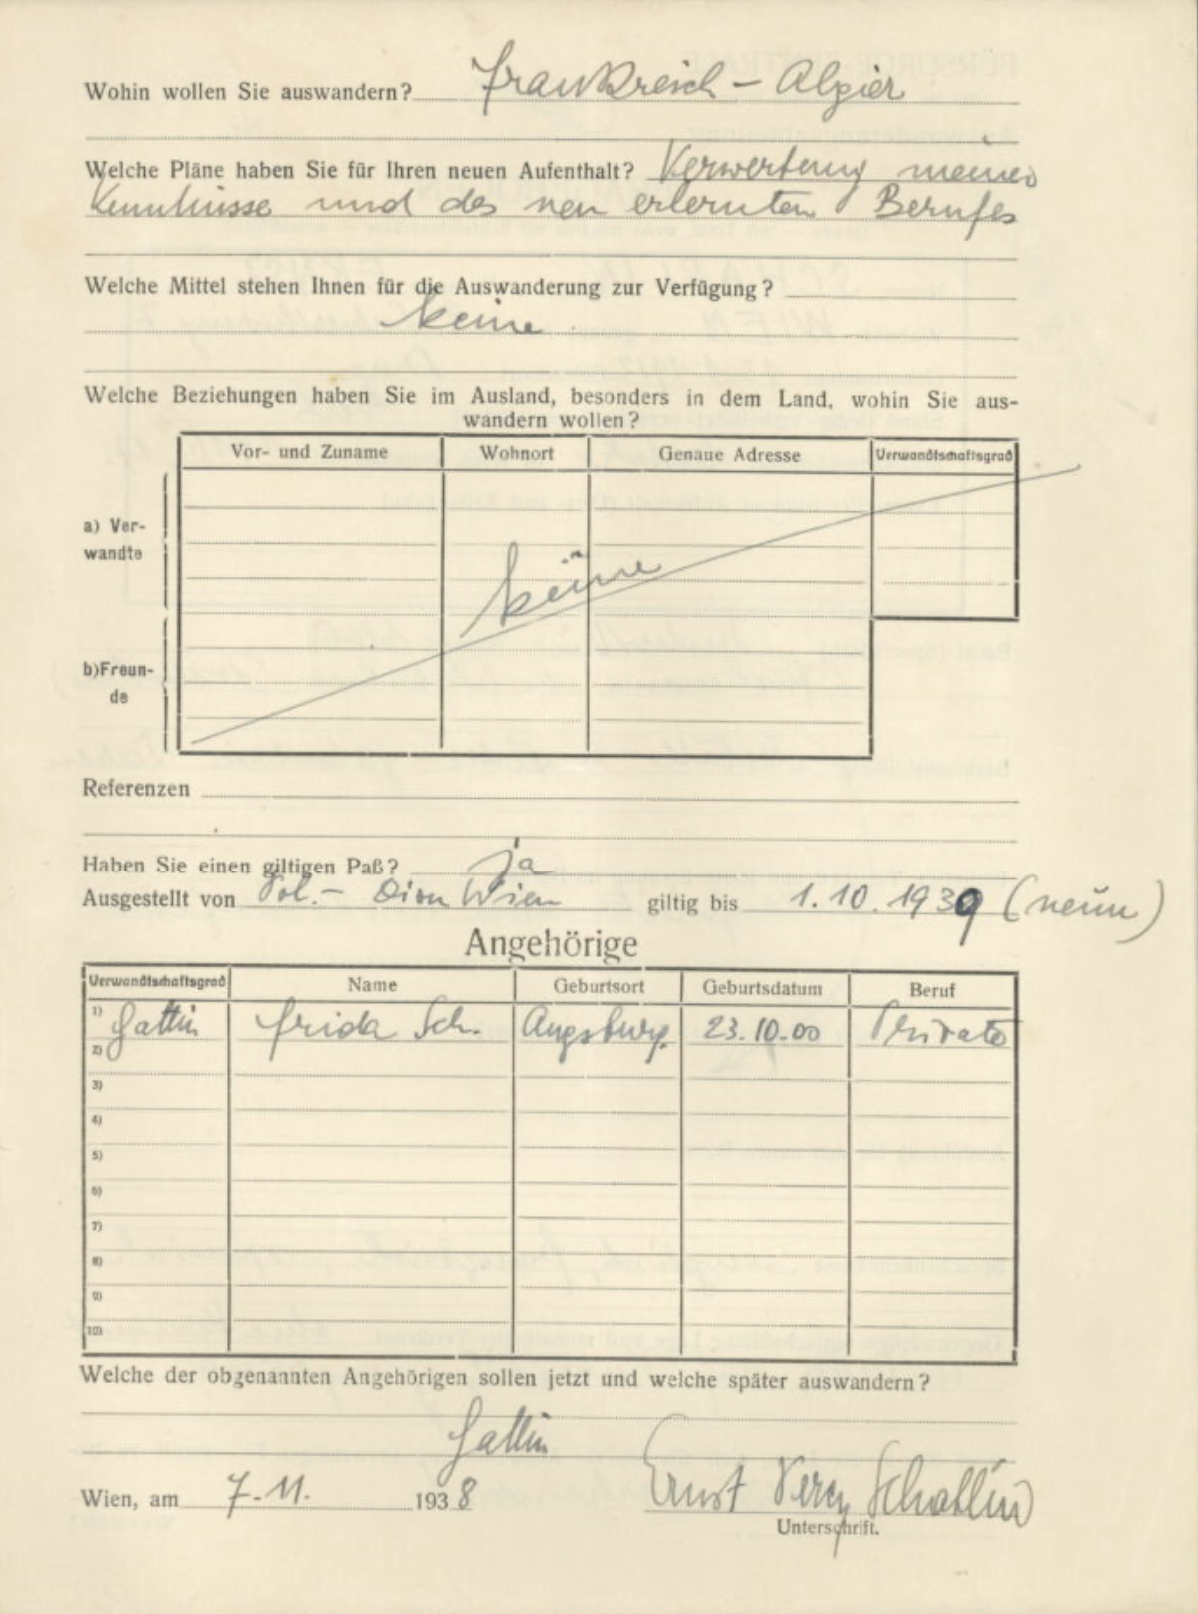 Wohin wollen Sie auswandern? Frankreich – Algier
Welche Pläne haben Sie für Ihren neuen Aufenthalt? Verwertung meiner
Kenntnisse und des neu erlernten Berufes
Welche Mittel stehen Ihnen für die Auswanderung zur Verfügung?
keine
Welche Beziehungen haben Sie im Ausland, besonders in dem Land, wohin Sie aus-
wandern wollen?
Vor- und Zuname Wohnort Genaue Adresse Verwandtschaftsgrad
a) Ver-
wandte
keine
b) Freun-
de
Referenzen
Haben Sie einen giltigen Paß? ja
Ausgestellt von Pol.- Dion Wien giltig bis 1.10.1939 (neun)
Angehörige
Verwandtschaftsgrad Name Geburtsort Geburtsdatum Beruf
1) Gattin Frida Sch. Augsburg 23.10.00 Private
2)
3)
4)
5)
6)
7)
8)
9)
10)
Welche der obgenannten Angehörigen sollen jetzt und welche später auswandern?
Gattin
Wien, am 7.11. 1938 Ernst
Unterschrift.